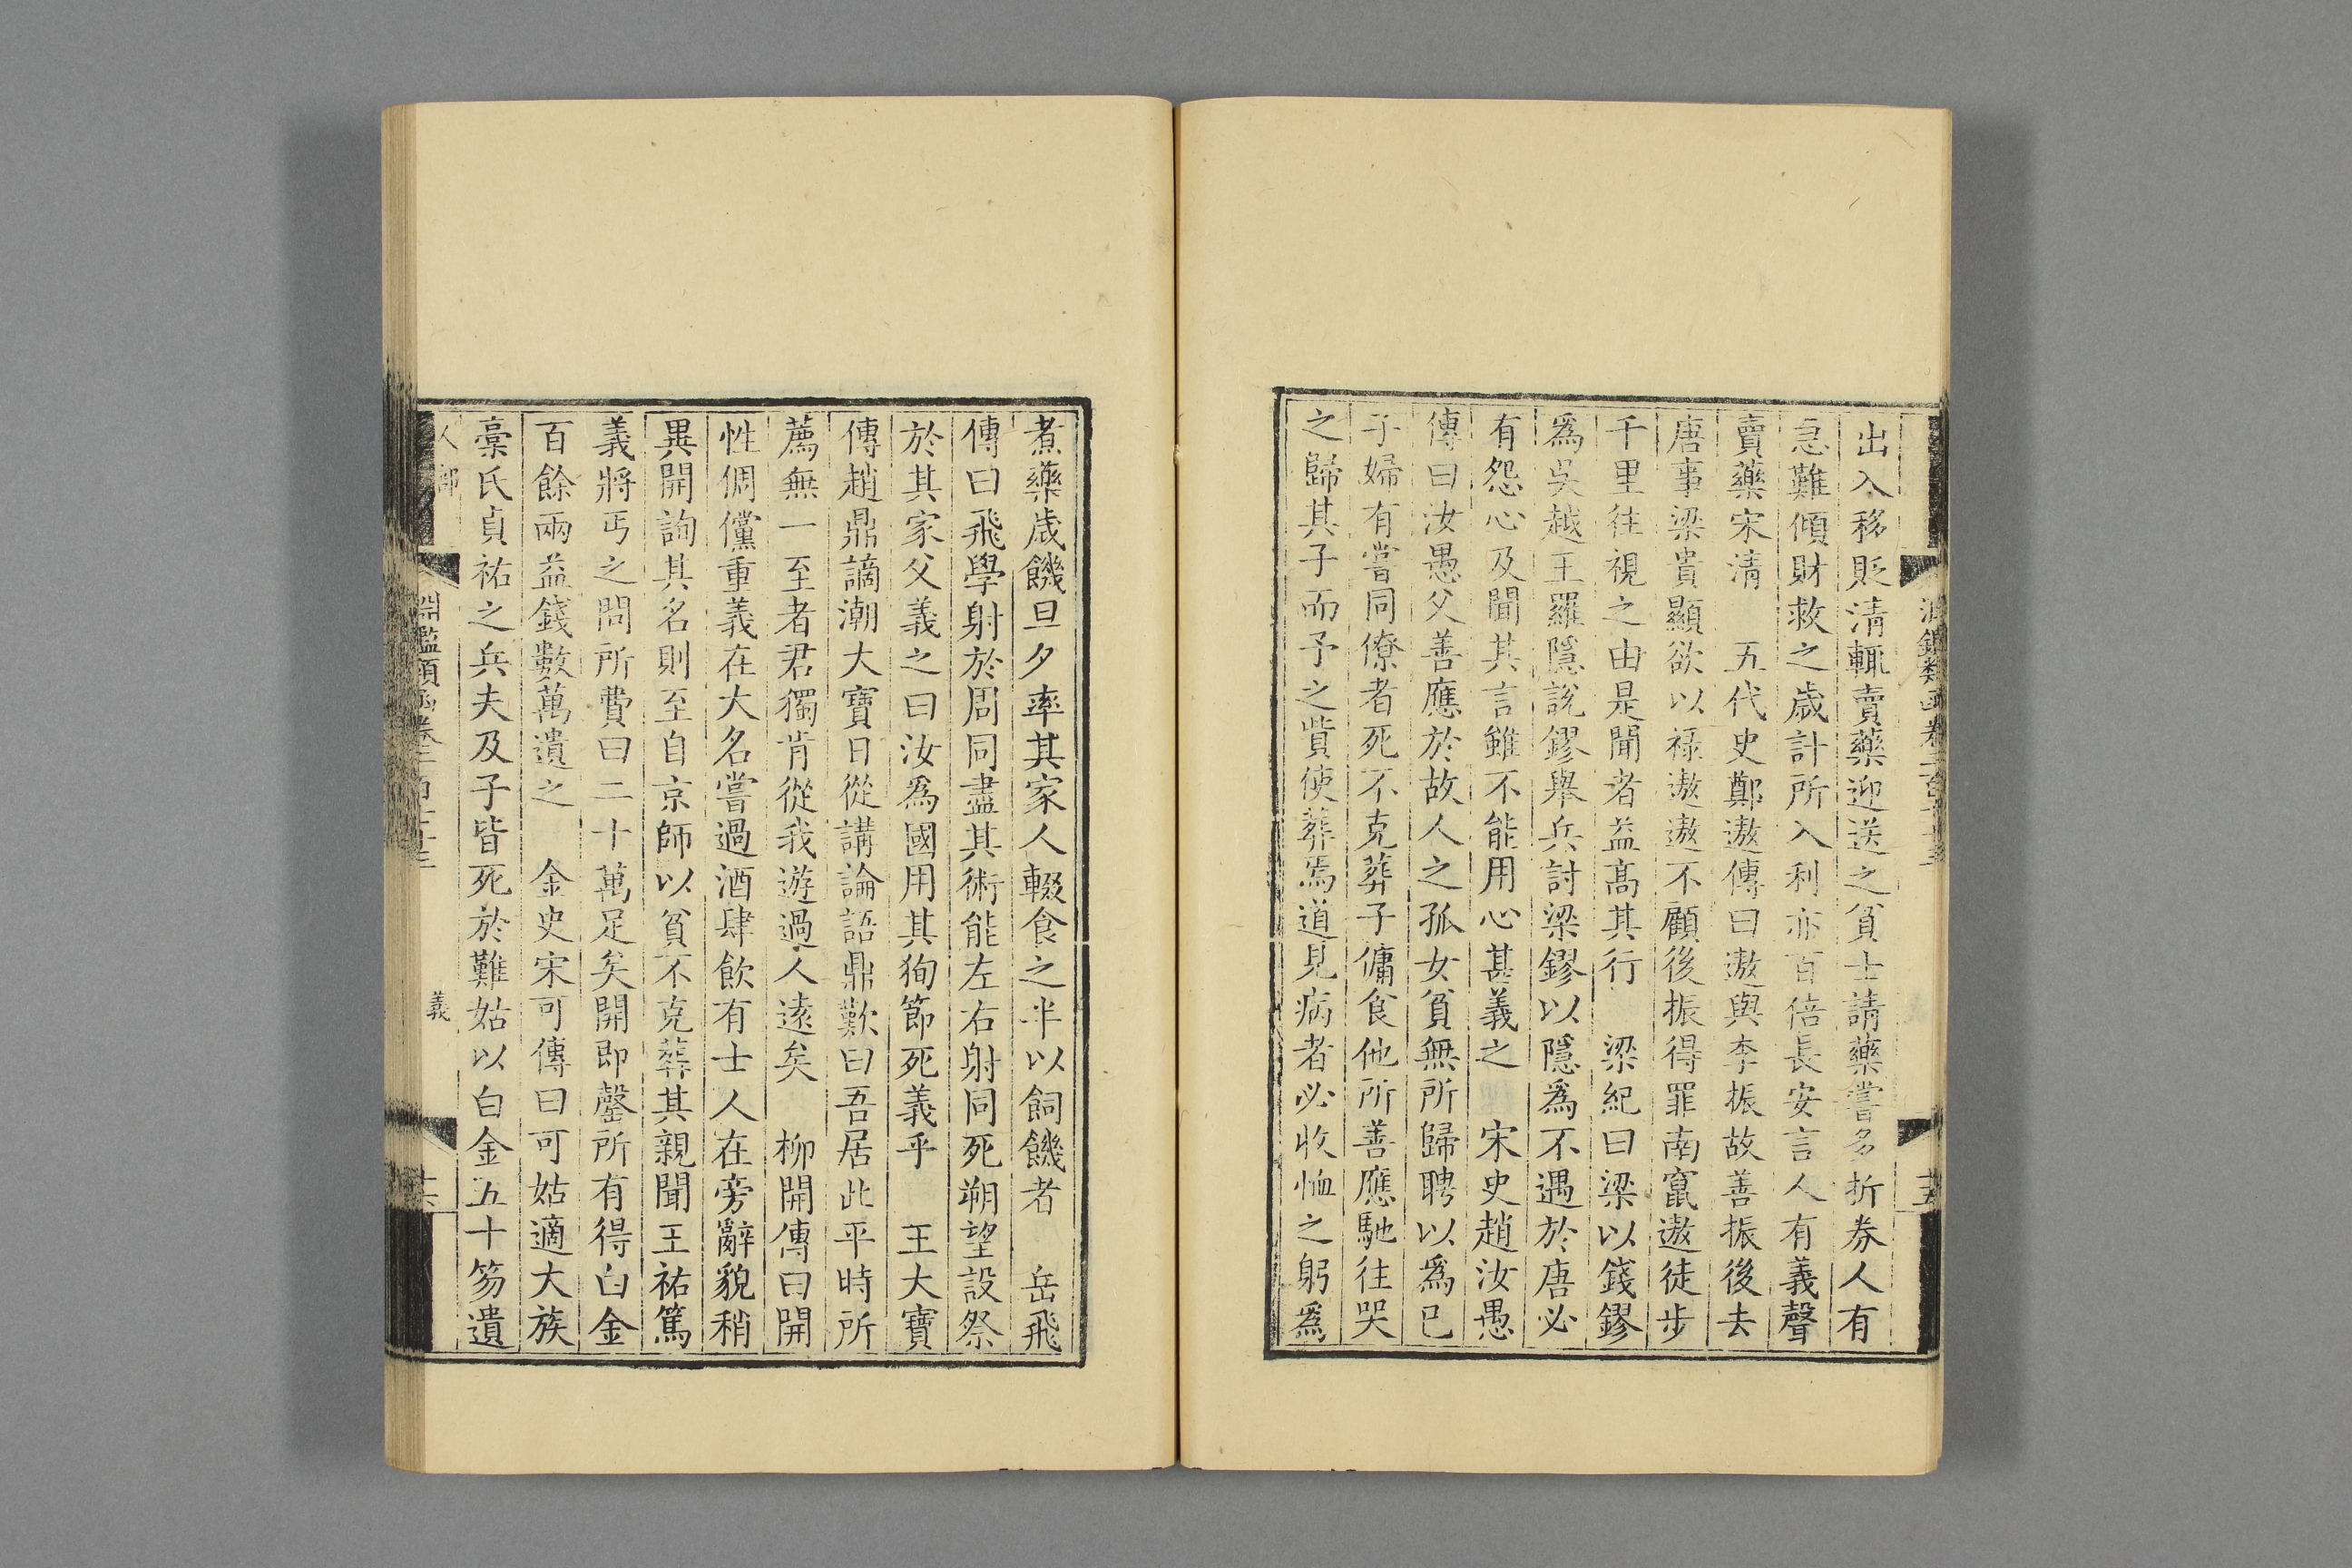 出入移貶清輒賣藥迎送之貧士請藥嘗多折券人有
急難傾財救之歲計所入利亦百倍長安言人有義聲
賣藥宋清　五代史鄭遨傳曰遨與李振故善振後去
唐事梁貴顯欲以祿遨遨不顧後振得罪南竄遨徒步
千里往視之由是聞者益高其行　梁紀曰梁以錢鏐
爲吳越王羅隱說鏐舉兵討梁鏐以隱爲不遇於唐必
有怨心及聞其言雖不能用心甚義之　宋史趙汝愚
傳曰汝愚父善應於故人之孤女貧無所歸聘以爲已
子婦有嘗同僚者死不克葬子傭食他所善應馳往哭
之歸其子而予之貲使葬焉道見病者必收恤之躬爲
煮藥歲饑旦夕率其家人輟食之半以飼饑者　岳飛
傳曰飛學射於周同盡其術能左右射同死朔望設祭
於其家父義之曰汝爲國用其狥節死義乎　王大寶
傳趙鼎謫潮大寶日從講論語鼎歎曰吾居此平時所
薦無一至者君獨肯從我遊過人遠矣　柳開傳曰開
性倜儻重義在大名嘗過酒肆飲有士人在旁辭貌稍
異開詢其名則至自京師以貧不克葬其親聞王祐篤
義將丐之問所費曰二十萬足矣開即罄所有得白金
百餘兩益錢數萬遺之　金史宋可傳曰可姑適大族
槀氏貞祐之兵夫及子皆死於難姑以白金五十笏遺
人部
淵鑑類函卷三百十三
義